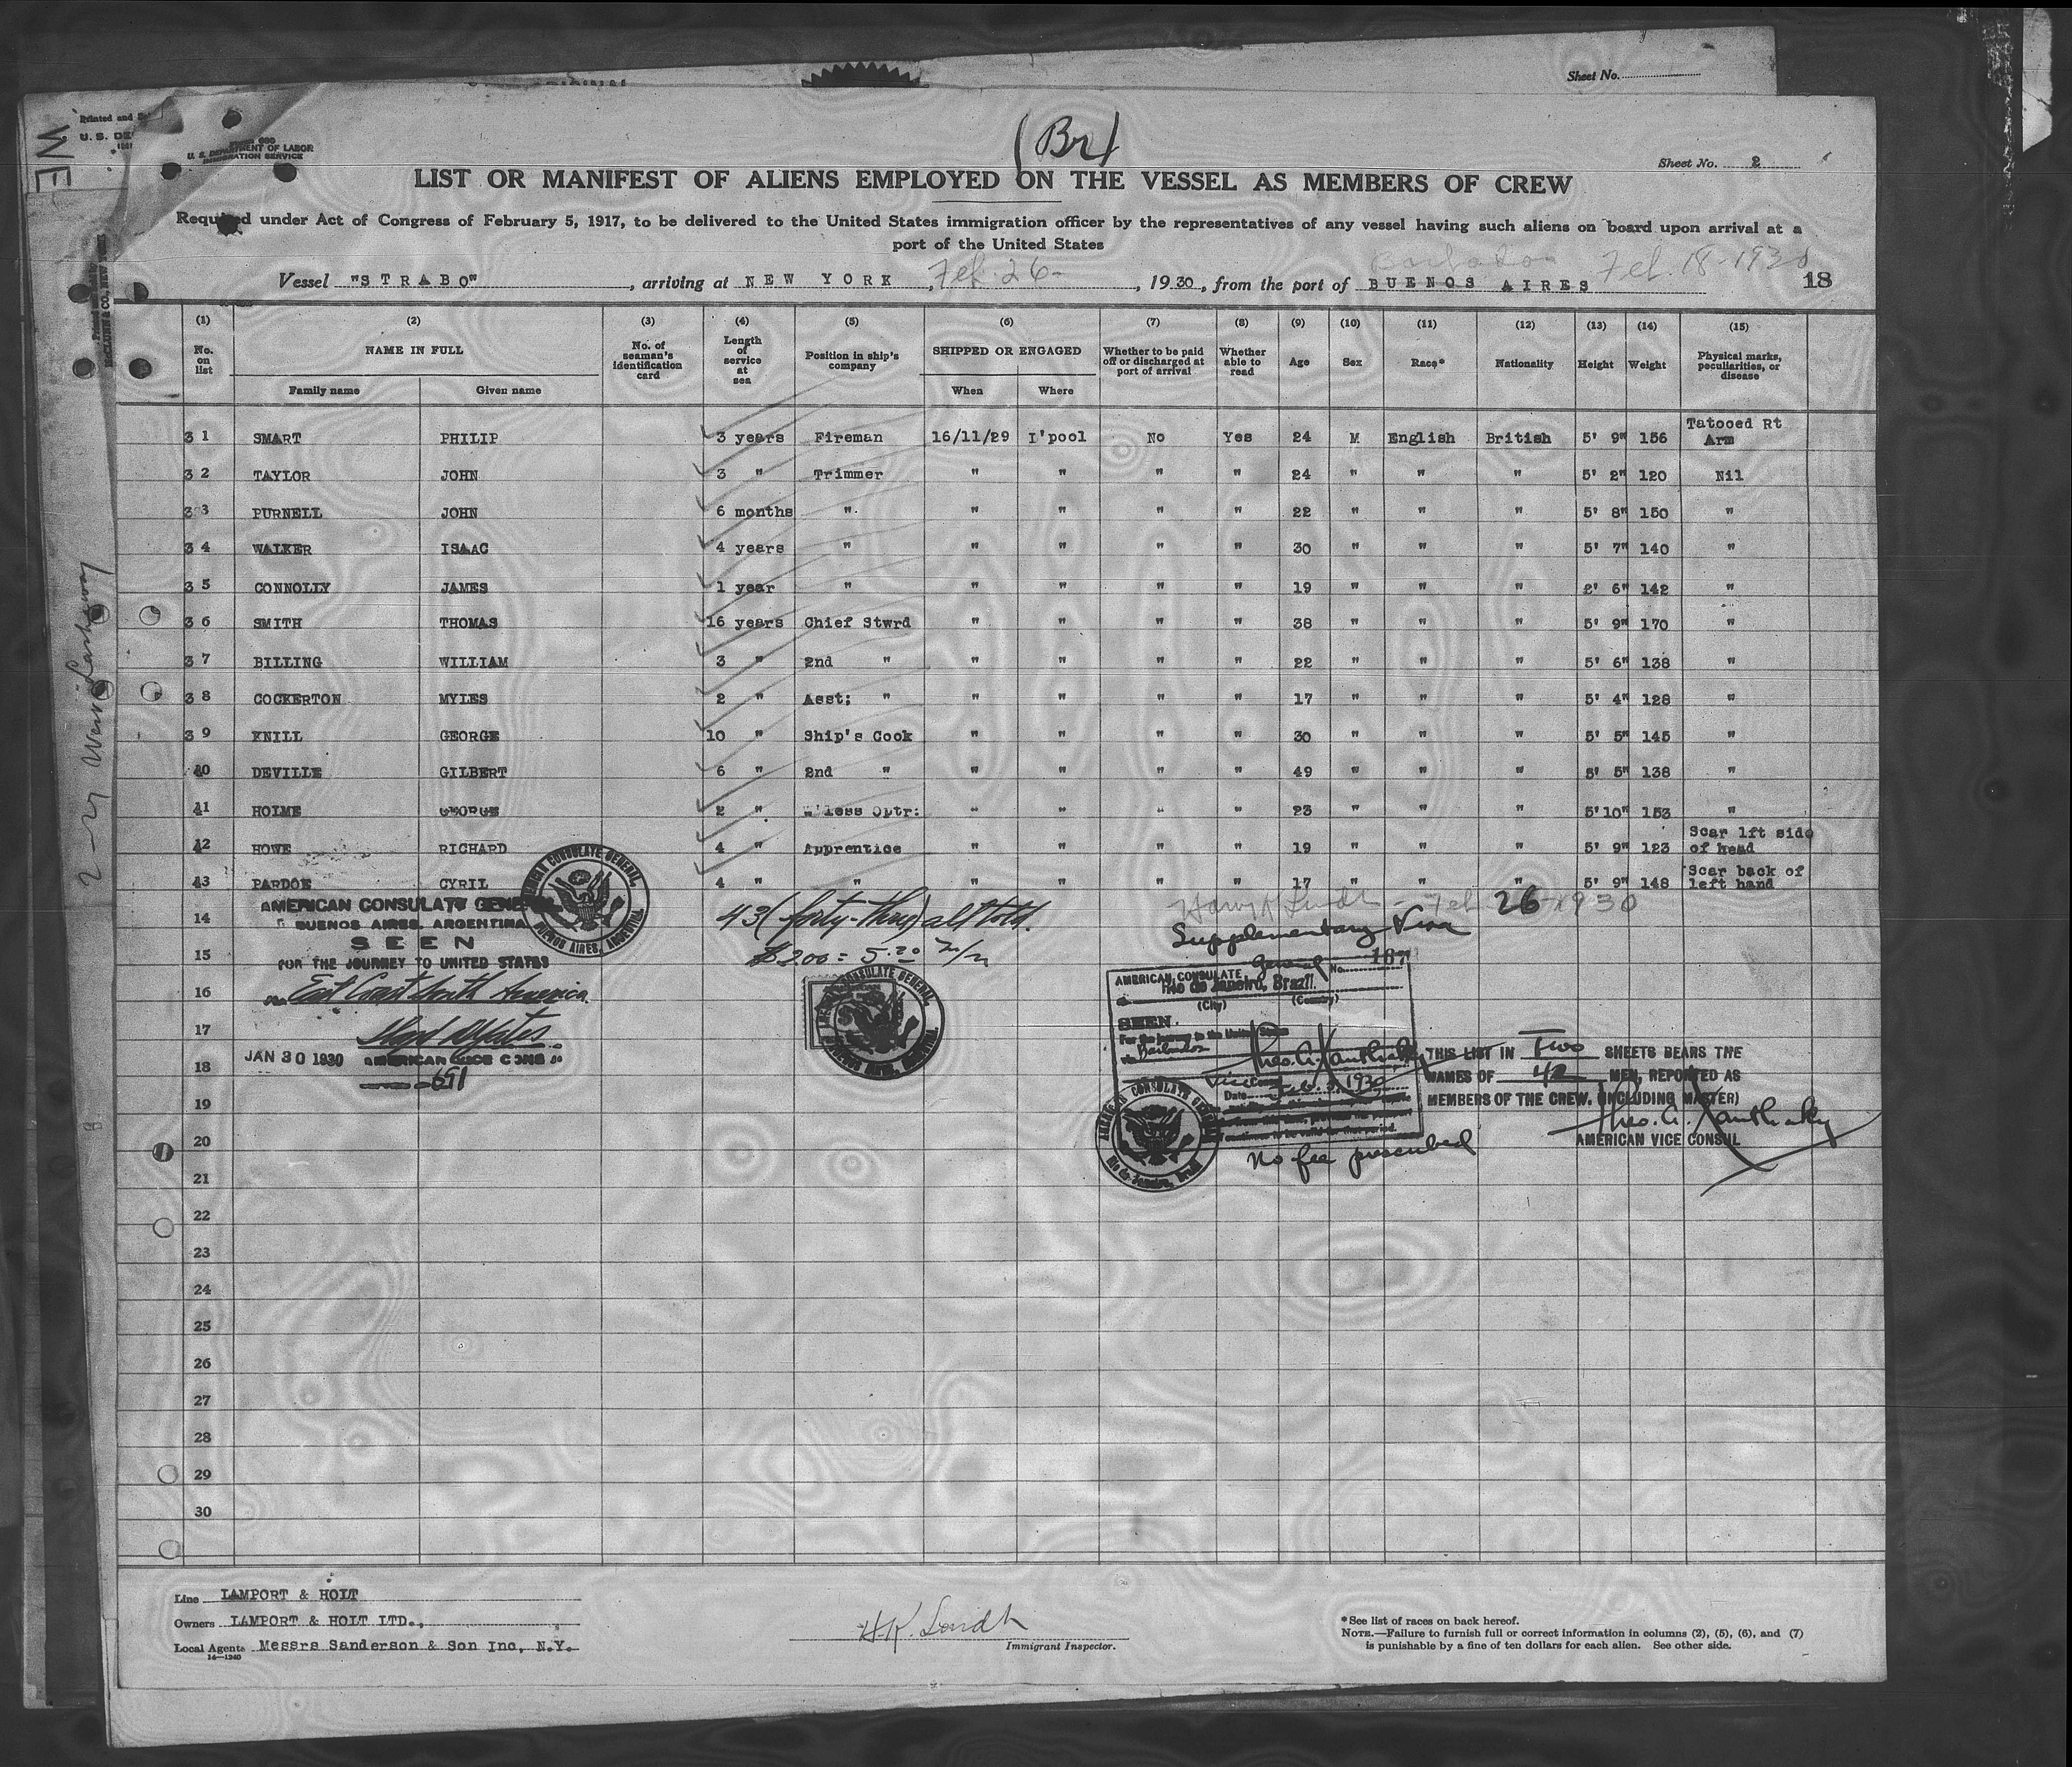 Sheet No.
Printed and
U. S. DE
U. S. DEPARTMENT OF LABOR
IMMIGRATION SERVICE
WE
(Br)
Sheet No. 2
LIST OR MANIFEST OF ALIENS EMPLOYED ON THE VESSEL AS MEMBERS OF CREW
Required under Act of Congress of February 5, 1917, to be delivered to the United States immigration officer by the representatives of any vessel having such aliens on board upon arrival at a
port of the United States
Barbados Feb. 18-1930
Vessel "STRABO", arriving at NEW YORK, Feb. 26-, 1930, from the port of BUENOS AIRES 18
(1) (2) (3) (4) (5) (6) (7) (8) (9) (10) (11) (12) (13) (14) (15)
No. on list NAME IN FULL Family name Given name No. of seaman's identification card Length of service at sea Position in ship's company SHIPPED OR ENGAGED When Where Whether to be paid off or discharged at port of arrival Whether able to read Age Sex Race* Nationality Height Weight Physical marks, peculiarities, or disease
31 SMART PHILIP 3 years Fireman 16/11/29 L'pool No Yes 24 M English British 5' 9" 156 Tatooed Rt Arm
32 TAYLOR JOHN 3 " Trimmer " " " " 24 " " " 5' 2" 120 Nil
33 PURNELL JOHN 6 months " " " " " 22 " " " 5' 8" 150 "
34 WALKER ISAAC 4 years " " " " " 30 " " " 5' 7" 140 "
35 CONNOLLY JAMES 1 year " " " " " 19 " " " 2' 6" 142 "
36 SMITH THOMAS 16 years Chief Stwrd " " " " 38 " " " 5' 9" 170 "
37 BILLING WILLIAM 3 " 2nd " " " " " 22 " " " 5' 6" 138 "
38 COCKERTON MYLES 2 " Asst; " " " " " 17 " " " 5' 4" 128 "
39 KNILL GEORGE 10 " Ship's Cook " " " " 30 " " " 5' 5" 145 "
40 DEVILLE GILBERT 6 " 2nd " " " " " 49 " " " 5' 5" 138 "
41 HOLME GEORGE 2 " W'less Optr: " " " " 23 " " " 5'10" 153 "
42 HOWE RICHARD 4 " Apprentice " " " " 19 " " " 5' 9" 123 Scar lft side of head
43 PARDOE CYRIL 4 " " " " " " 17 " " " 5' 9" 148 Scar back of left hand
14
15
16
17
18
19
20
21
22
23
24
25
26
27
28
29
30
AMERICAN CONSULATE GENERAL
BUENOS AIRES, ARGENTINA
SEEN
FOR THE JOURNEY TO UNITED STATES
via East Coast South America.
JAN 30 1930 AMERICAN VICE CONSUL
691
AMERICAN CONSULATE GENERAL,
BUENOS AIRES, ARGENTINA.
43 (forty-three) all told.
$2.00 = 5.20 m/n
Feb 26-1930
Supplementary Visa
AMERICAN CONSULATE General No. 167
Rio de Janeiro, Brazil.
(City) (Country)
SEEN.
For the journey to the United States
via Barbados
Theo. A. Xanthaky
Vice Consul
Date Feb. 5, 1930
AMERICAN CONSULATE GENERAL
Rio de Janeiro, Brazil
No fee prescribed
THIS LIST IN Two SHEETS BEARS THE
NAMES OF 42 MEN, REPORTED AS
MEMBERS OF THE CREW. (INCLUDING MASTER)
Theo. A. Xanthaky
AMERICAN VICE CONSUL
Line LAMPORT & HOLT
Owners LAMPORT & HOLT LTD.,
Local Agents Messrs Sanderson & Son Inc, N.Y.
14—1240
Immigrant Inspector.
*See list of races on back hereof.
NOTE.—Failure to furnish full or correct information in columns (2), (5), (6), and (7)
is punishable by a fine of ten dollars for each alien. See other side.